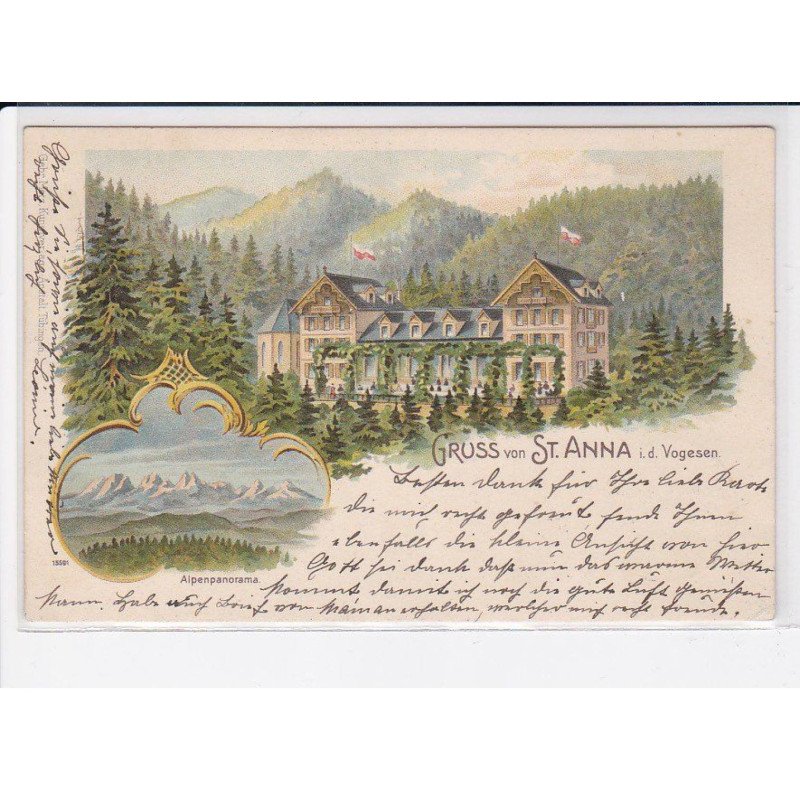 GRUSS von ST. ANNA i. d. Vogesen.
Besten Dank für Ihre liebe Karte
die mich recht gefreut sende Ihnen
ebenfalls die kleine Ansicht von hier
Gott sei dank daß nun das warme Wetter
kommt damit ich noch die gute Luft genießen
kann. Habe auch Brief von Maman erhalten, welcher mich recht freute.
Alpenpanorama.
13591